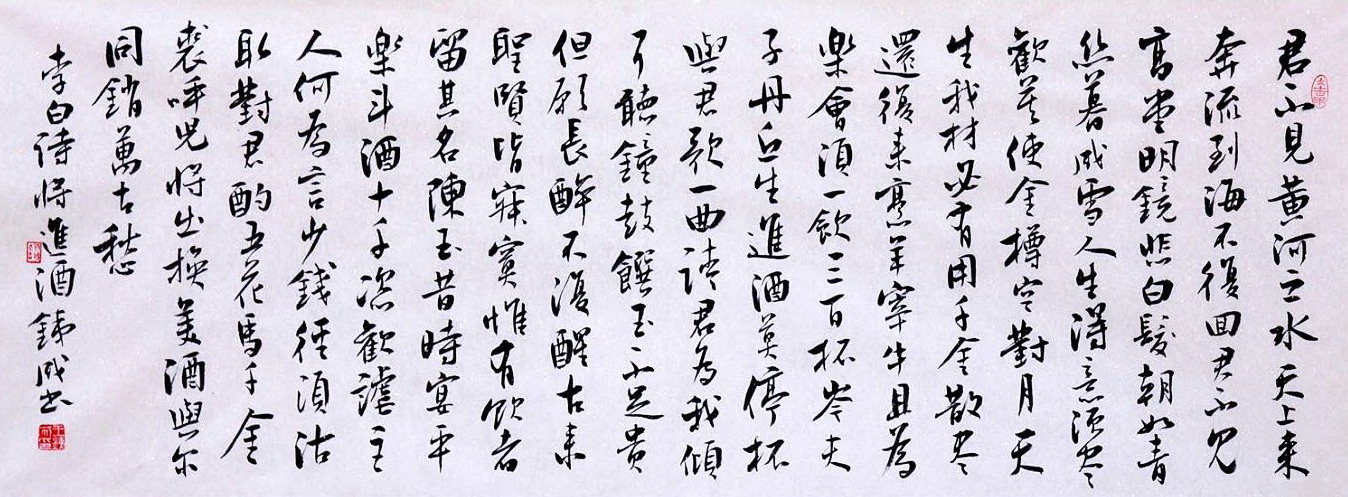 君不見黄河之水天上来
奔流到海不復回君不見
高堂明鏡悲白髮朝如青
丝暮成雪人生得意須尽
歡莫使金樽空對月天
生我材必有用千金散尽
還復来烹羊宰牛且為
樂會須一飲三百杯岑夫
子丹丘生進酒莫停杯
與君歌一曲請君為我傾
耳聽鐘鼓饌玉不足貴
但願長醉不復醒古来
聖賢皆寂寞惟有飲者
留其名陳王昔時宴平
樂斗酒十千恣歡謔主
人何為言少錢径須沽
取對君酌五花馬千金
裘呼児将出换美酒與尔
同銷萬古愁
李白诗将進酒銕成书